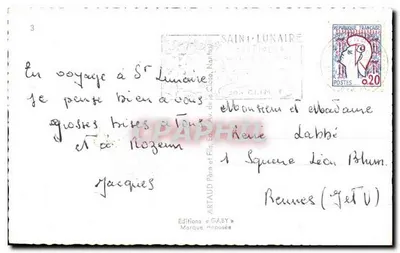 3
SAINT-LUNAIRE
REPUBLIQUE FRANCAISE
POSTES 0,20
En voyage à St Lunaire
je pense bien à vous
grosses bises à Tous
et à Rozenn
Jacques
Monsieur et Madame
René Labbé
1 Square Léon Blum
Rennes (I et V)
Editions "GABY"
Marque Déposée